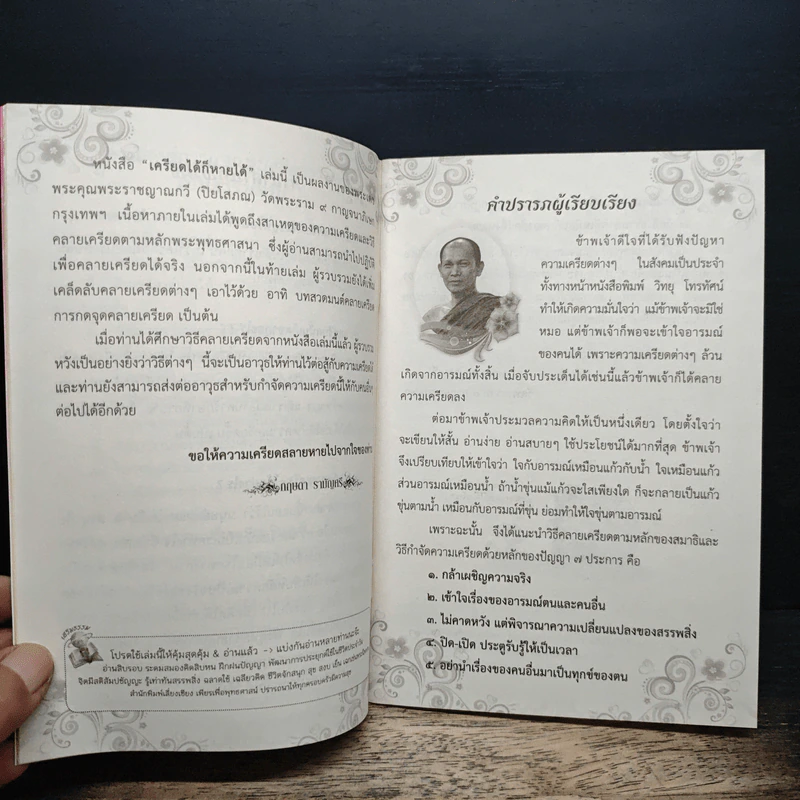 หนังสือ "เครียดได้ก็หายได้" เล่มนี้ เป็นผลงานของพระเดช
พระคุณพระราชญาณกวี (ปิยโสภณ) วัดพระราม ๙ กาญจนาภิเษก
กรุงเทพฯ เนื้อหาภายในเล่มได้พูดถึงสาเหตุของความเครียดและวิธี
คลายเครียดตามหลักพระพุทธศาสนา ซึ่งผู้อ่านสามารถนำไปปฏิบัติ
เพื่อคลายเครียดได้จริง นอกจากนี้ในท้ายเล่ม ผู้รวบรวมยังได้เพิ่ม
เคล็ดลับคลายเครียดต่างๆ เอาไว้ด้วย อาทิ บทสวดมนต์คลายเครียด
การกดจุดคลายเครียด เป็นต้น
เมื่อท่านได้ศึกษาวิธีคลายเครียดจากหนังสือเล่มนี้แล้ว ผู้รวบรวม
หวังเป็นอย่างยิ่งว่าวิธีต่างๆ นี้จะเป็นอาวุธให้ท่านไว้ต่อสู้กับความเครียดได้
และท่านยังสามารถส่งต่ออาวุธสำหรับกำจัดความเครียดนี้ให้กับคนอื่นๆ
ต่อไปได้อีกด้วย
ขอให้ความเครียดสลายหายไปจากใจของท่าน
กฤษดา รามัญศรี
เสริมธรรม
โปรดใช้เล่มนี้ให้คุ้มสุดคุ้ม & อ่านแล้ว -> แบ่งกันอ่านหลายท่านนะจ๊ะ
อ่านสิบรอบ ระดมสมองคิดสิบหน ฝึกฝนปัญญา พัฒนาการประยุกต์ใช้ในชีวิตประจำวัน
จิตมีสติสัมปชัญญะ รู้เท่าทันสรรพสิ่ง ฉลาดใช้ เฉลียวคิด ชีวิตจักสนุก สุข สงบ เย็น
สำนักพิมพ์เลี่ยงเชียง เพียรเพื่อพุทธศาสน์ ปรารถนาให้ทุกครอบครัวมีความสุข
คำปรารภผู้เรียบเรียง
ข้าพเจ้าดีใจที่ได้รับฟังปัญหา
ความเครียดต่างๆ ในสังคมเป็นประจำ
ทั้งทางหน้าหนังสือพิมพ์ วิทยุ โทรทัศน์
ทำให้เกิดความมั่นใจว่า แม้ข้าพเจ้าจะมิใช่
หมอ แต่ข้าพเจ้าก็พอจะเข้าใจอารมณ์
ของคนได้ เพราะความเครียดต่างๆ ล้วน
เกิดจากอารมณ์ทั้งสิ้น เมื่อจับประเด็นได้เช่นนี้แล้วข้าพเจ้าก็ได้คลาย
ความเครียดลง
ต่อมาข้าพเจ้าประมวลความคิดให้เป็นหนึ่งเดียว โดยตั้งใจว่า
จะเขียนให้สั้น อ่านง่าย อ่านสบายๆ ใช้ประโยชน์ได้มากที่สุด ข้าพเจ้า
จึงเปรียบเทียบให้เข้าใจว่า ใจกับอารมณ์เหมือนแก้วกับน้ำ ใจเหมือนแก้ว
ส่วนอารมณ์เหมือนน้ำ ถ้าน้ำขุ่นแม้แก้วจะใสเพียงใด ก็จะกลายเป็นแก้ว
ขุ่นตามน้ำ เหมือนกับอารมณ์ที่ขุ่น ย่อมทำให้ใจขุ่นตามอารมณ์
เพราะฉะนั้น จึงได้แนะนำวิธีคลายเครียดตามหลักของสมาธิและ
วิธีกำจัดความเครียดด้วยหลักของปัญญา ๗ ประการ คือ
๑. กล้าเผชิญความจริง
๒. เข้าใจเรื่องของอารมณ์ตนและคนอื่น
๓. ไม่คาดหวัง แต่พิจารณาความเปลี่ยนแปลงของสรรพสิ่ง
๔. ปิด-เปิด ประตูรับรู้ให้เป็นเวลา
๕. อย่านำเรื่องของคนอื่นมาเป็นทุกข์ของตน